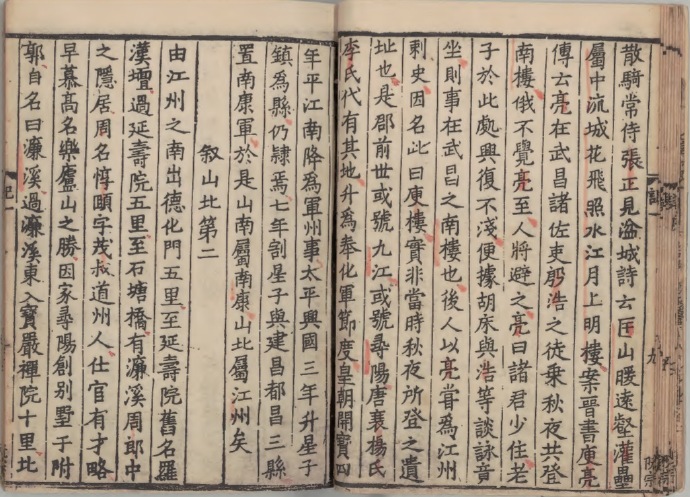 散騎常侍張正見湓城詩云匡山暖遠壑灌壘
屬中流城花飛照水江月上明樓案晉書庾亮
傳云亮在武昌諸佐吏殷浩之徒乗秋夜共登
南樓俄不覺亮至人將避之亮曰諸君少住老
子於此處興復不淺便據胡床與浩等談詠竟
坐則事在武昌之南樓也後人以亮甞爲江州
刺史因名此曰庾樓實非當時秋夜所登之遺
址也是郡前世或號九江或號尋陽唐襄楊氏
李氏代有其地升爲奉化軍節度皇朝開寳四
年平江南降爲軍州事太平興國三年升星子
鎮爲縣仍隷焉七年割星子與建昌都昌三縣
置南康軍於是山南屬南康山北屬江州矣
叙山北第二
由江州之南出德化門五里至延壽院舊名羅
漢壇過延壽院五里至石塘橋有濂溪周郎中
之隱居周名惇頤字茂叔道州人仕官有才略
早慕髙名樂廬山之勝因家尋陽創别墅于附
郭自名曰濂溪過濂溪東入寳嚴禪院十里北
記一
九